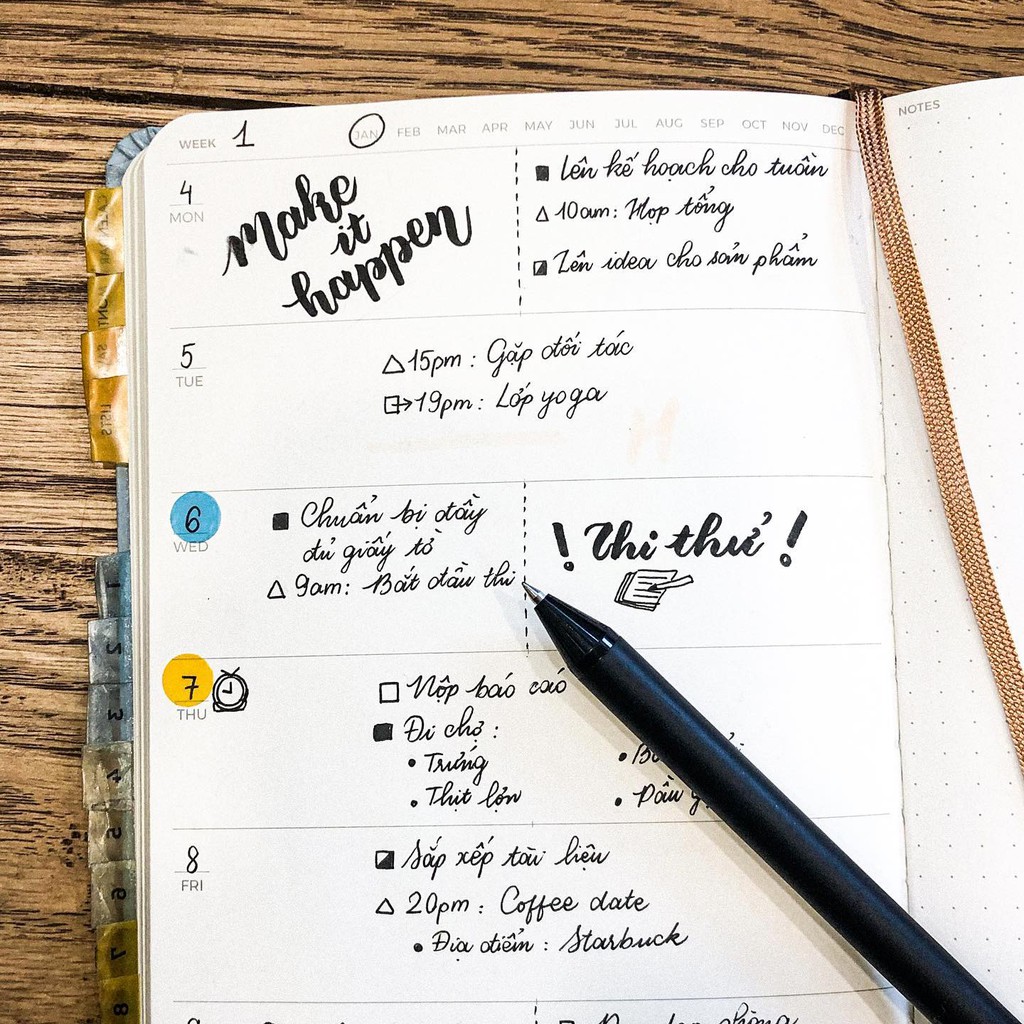 WEEK 1 JAN FEB MAR APR MAY JUN JUL AUG SEP OCT NOV DEC
NOTES
4
MON
make
it
happen
Lên kế hoạch cho tuần
10am: Họp tổng
Lên idea cho sản phẩm
5
TUE
15pm: Gặp đối tác
19pm: Lớp yoga
6
WED
Chuẩn bị đầy
đủ giấy tờ
9am: Bắt đầu thi
! Thi thử !
7
THU
Nộp báo cáo
Đi chợ:
• Trứng
• Thịt lợn
• Dầu
8
FRI
Sắp xếp tài liệu
20pm: Coffee date
• Địa điểm: Starbuck
1
2
3
4
5
6
7
8